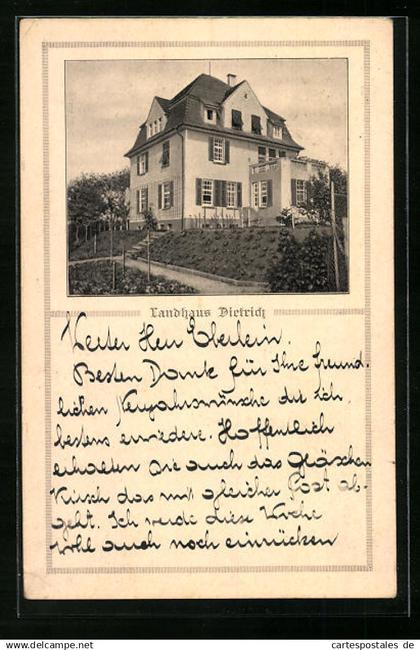 Landhaus Dietrich
Werter Herr Eberlein.
Besten Dank für Ihre freund-
lichen Neujahrswünsche die ich
bestens erwiedere. Hoffentlich
erhalten Sie auch das Gläschen
Kirsch das mit gleicher Post ab-
geht. Ich werde diese Woche
wohl auch noch einrücken
www.cartespostales.de